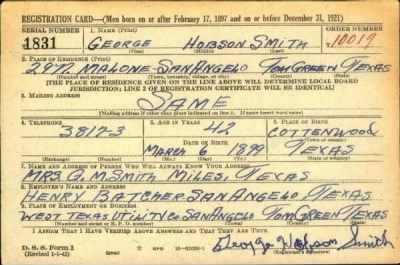 REGISTRATION CARD—(Men born on or after February 17, 1897 and on or before December 31, 1921)
SERIAL NUMBER 1. NAME (Print) ORDER NUMBER
1831 GEORGE HOBSON SMITH 10019
(First) (Middle) (Last)
2. PLACE OF RESIDENCE (Print)
297 MALONE SAN ANGELO TOM GREEN TEXAS
(Number and street) (Town, township, village, or city) (County) (State)
[THE PLACE OF RESIDENCE GIVEN ON THE LINE ABOVE WILL DETERMINE LOCAL BOARD
JURISDICTION; LINE 2 OF REGISTRATION CERTIFICATE WILL BE IDENTICAL]
3. MAILING ADDRESS
SAME
[Mailing address if other than place indicated on line 2. If same insert word same]
4. TELEPHONE 5. AGE IN YEARS 6. PLACE OF BIRTH
3817-3 42 COTTENWOOD
DATE OF BIRTH (Town or county)
MARCH 6 1899 TEXAS
(Exchange) (Number) (Mo.) (Day) (Yr.) (State or country)
7. NAME AND ADDRESS OF PERSON WHO WILL ALWAYS KNOW YOUR ADDRESS
MRS. G. M. SMITH MILES, TEXAS
8. EMPLOYER'S NAME AND ADDRESS
HENRY BATCHER SAN ANGELO TEXAS
9. PLACE OF EMPLOYMENT OR BUSINESS
WEST TEXAS UTILITY CO SAN ANGELO TOM GREEN TEXAS
(Number and street or R. F. D. number) (Town) (County) (State)
I AFFIRM THAT I HAVE VERIFIED ABOVE ANSWERS AND THAT THEY ARE TRUE.
D. S. S. Form 1
(Revised 1-1-42) (over) GPO 16-21630-1
George Hobson Smith